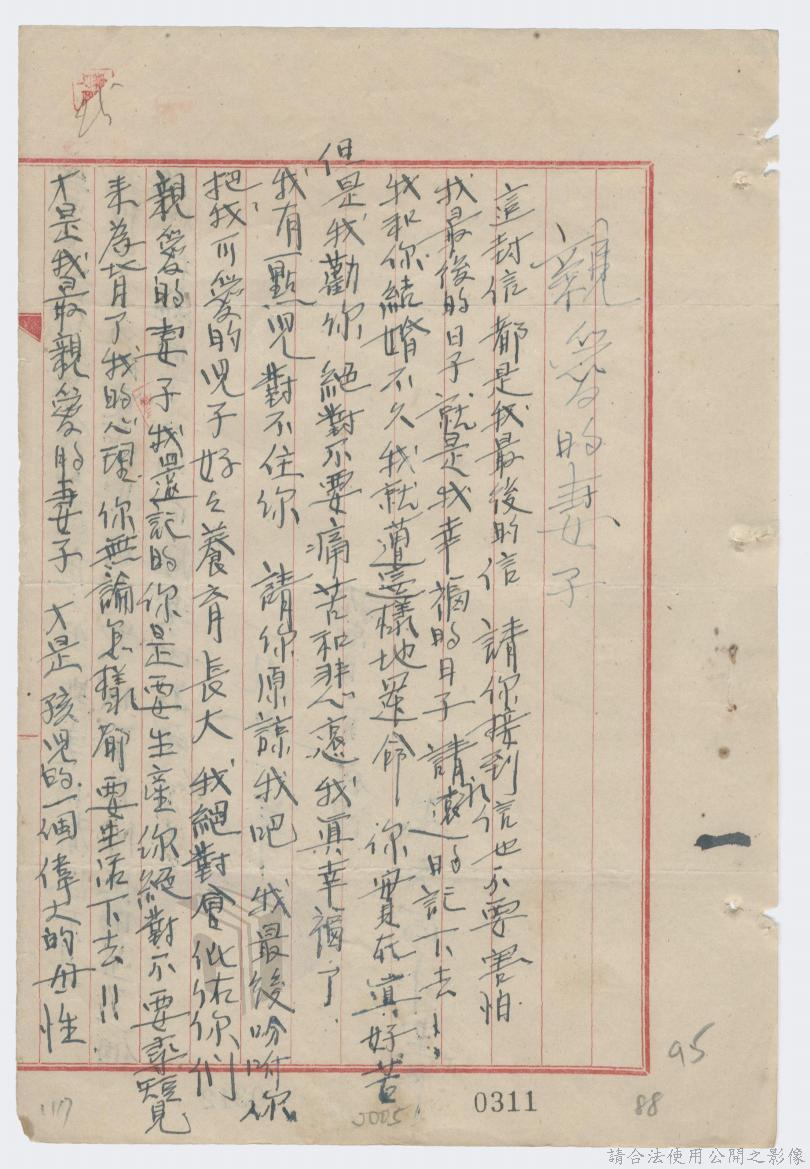 親愛的妻子
這封信都是我最後的信 請你接到信也不要害怕
我最後的日子就是我幸福的日子 請永遠的記下去！！
我和你結婚不久我就遭這樣地運命 你實在真好苦
但是我勸你 絕對不要痛苦和悲哀 我真幸福了
我有一點兒對不住你 請你原諒我吧 我最後吩咐你
把我可愛的兒子好々養育長大 我絕對會保佑你們
親愛的妻子 我還記的你是要生產 你絕對不要尋短覓
來為背了我的心理 你無論怎樣都要生活下去!!
才是我最親愛的妻子 才是孩兒的一個偉大的母性
0311
88
95
117
請合法使用公開之影像